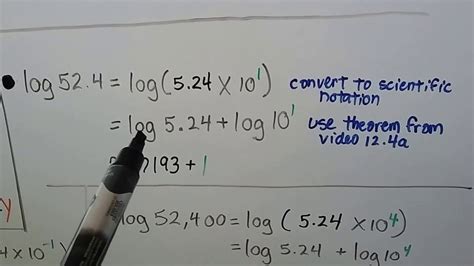 log 52.4 = log(5.24 × 10¹) convert to scientific notation
= log 5.24 + log 10¹ use theorem from video 12.4a
7193 + 1
log 52,400 = log (5.24 × 10⁴)
4 × 10⁻¹) = log 5.24 + log 10⁴
y